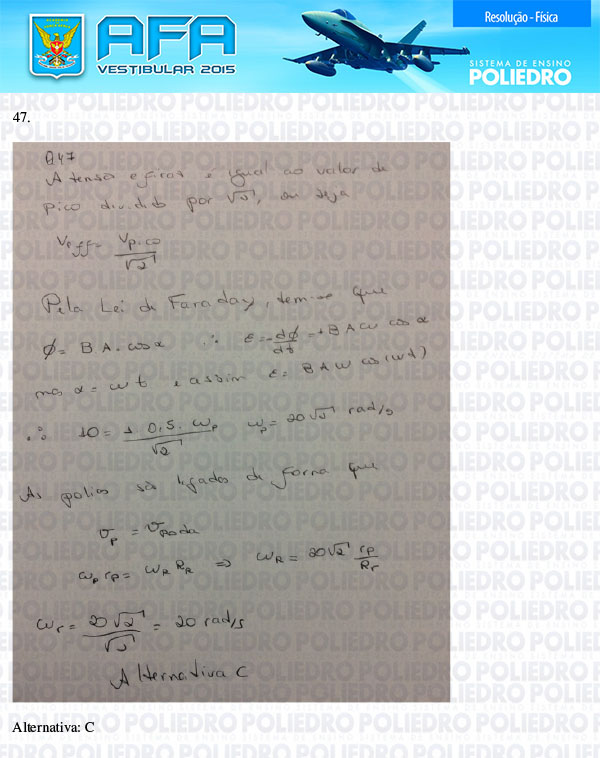 Resolução - Física
AFA
VESTIBULAR 2015
SISTEMA DE ENSINO
POLIEDRO
47.
Q47
A tensão eficaz é igual ao valor de
pico dividido por √2, ou seja
Veff = Vpico/√2
Pela Lei de Faraday tem-se que
ϕ = B A . cos α ∴ ε = -dϕ/dt = +B A ω cos α
mas α = ωt e assim ε = B A ω cos(ωt)
∴ 10 = 1 0,5. ωp/√2 ωp = 20√2 rad/s
As polias são ligadas de forma que
vp = vroda
ωp rp = ωR RR ⇒ ωR = 20√2 rp/Rr
ωr = 20√2/√2 = 20 rad/s
Alternativa C
Alternativa: C